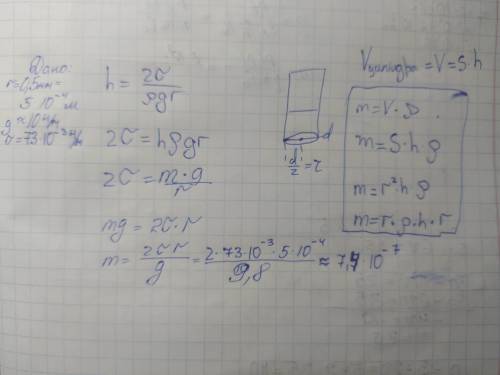 Дано:
r=0,5мм=
5·10⁻⁴ м
g≈10
σ=73·10⁻³
h = 2σ/ρgr
2σ=hρgr
2σ=m·g/r
mg = 2σ·r
m = 2σr/g = 2·73·10⁻³·5·10⁻⁴/9,8 ≈ 7,4·10⁻⁷
d
d/2=r
Vцилиндра=V=S·h
m=V·ρ
m=S·h ρ
m=r²·h ρ
m=r·ρ·h·r